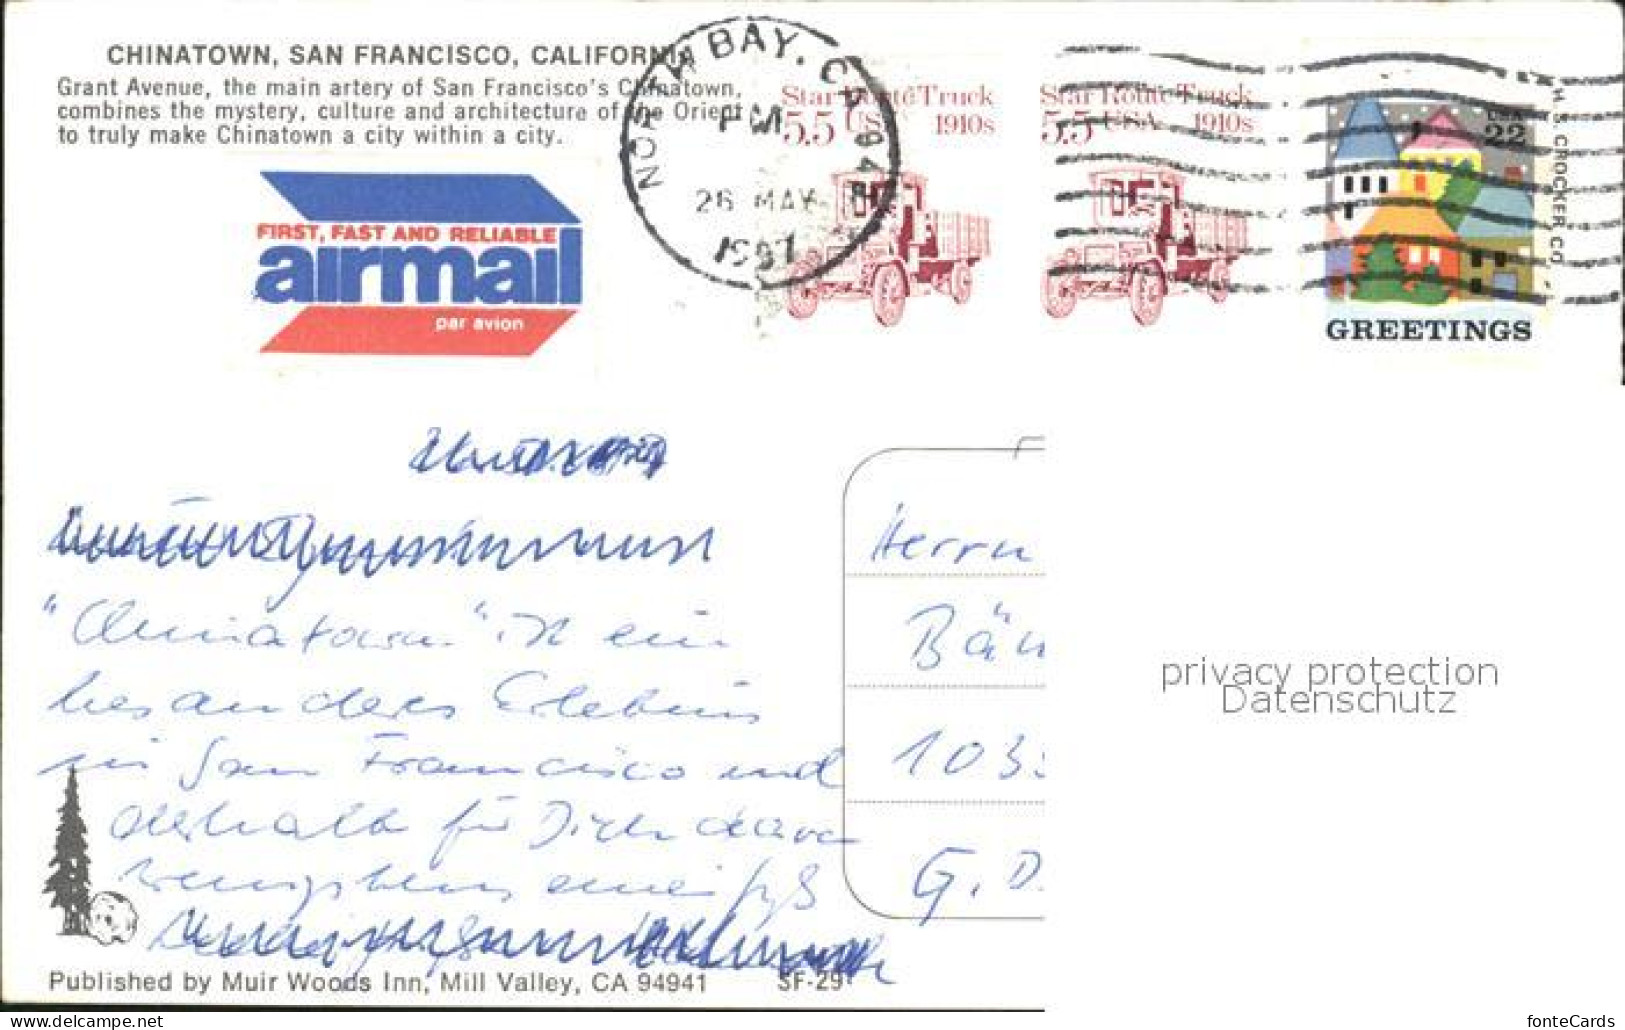 CHINATOWN, SAN FRANCISCO, CALIFORNIA
Grant Avenue, the main artery of San Francisco's Chinatown,
combines the mystery, culture and architecture of the Orient
to truly make Chinatown a city within a city.
FIRST, FAST AND RELIABLE
airmail
par avion
NORTH BAY, CA 949
PM
26 MAY
1987
Star Route Truck
5.5 USA 1910s
Star Route Truck
5.5 USA 1910s
USA
22
GREETINGS
H.S. CROCKER CO.
"Chinatown" ist ein
besonderes Erlebnis
in San Francisco und
deshalb für Dich davon
wenigstens einen Gruß
Herrn
Bän
103
G. D.
privacy protection
Datenschutz
Published by Muir Woods Inn, Mill Valley, CA 94941 SF-29
www.delcampe.net
fonteCards